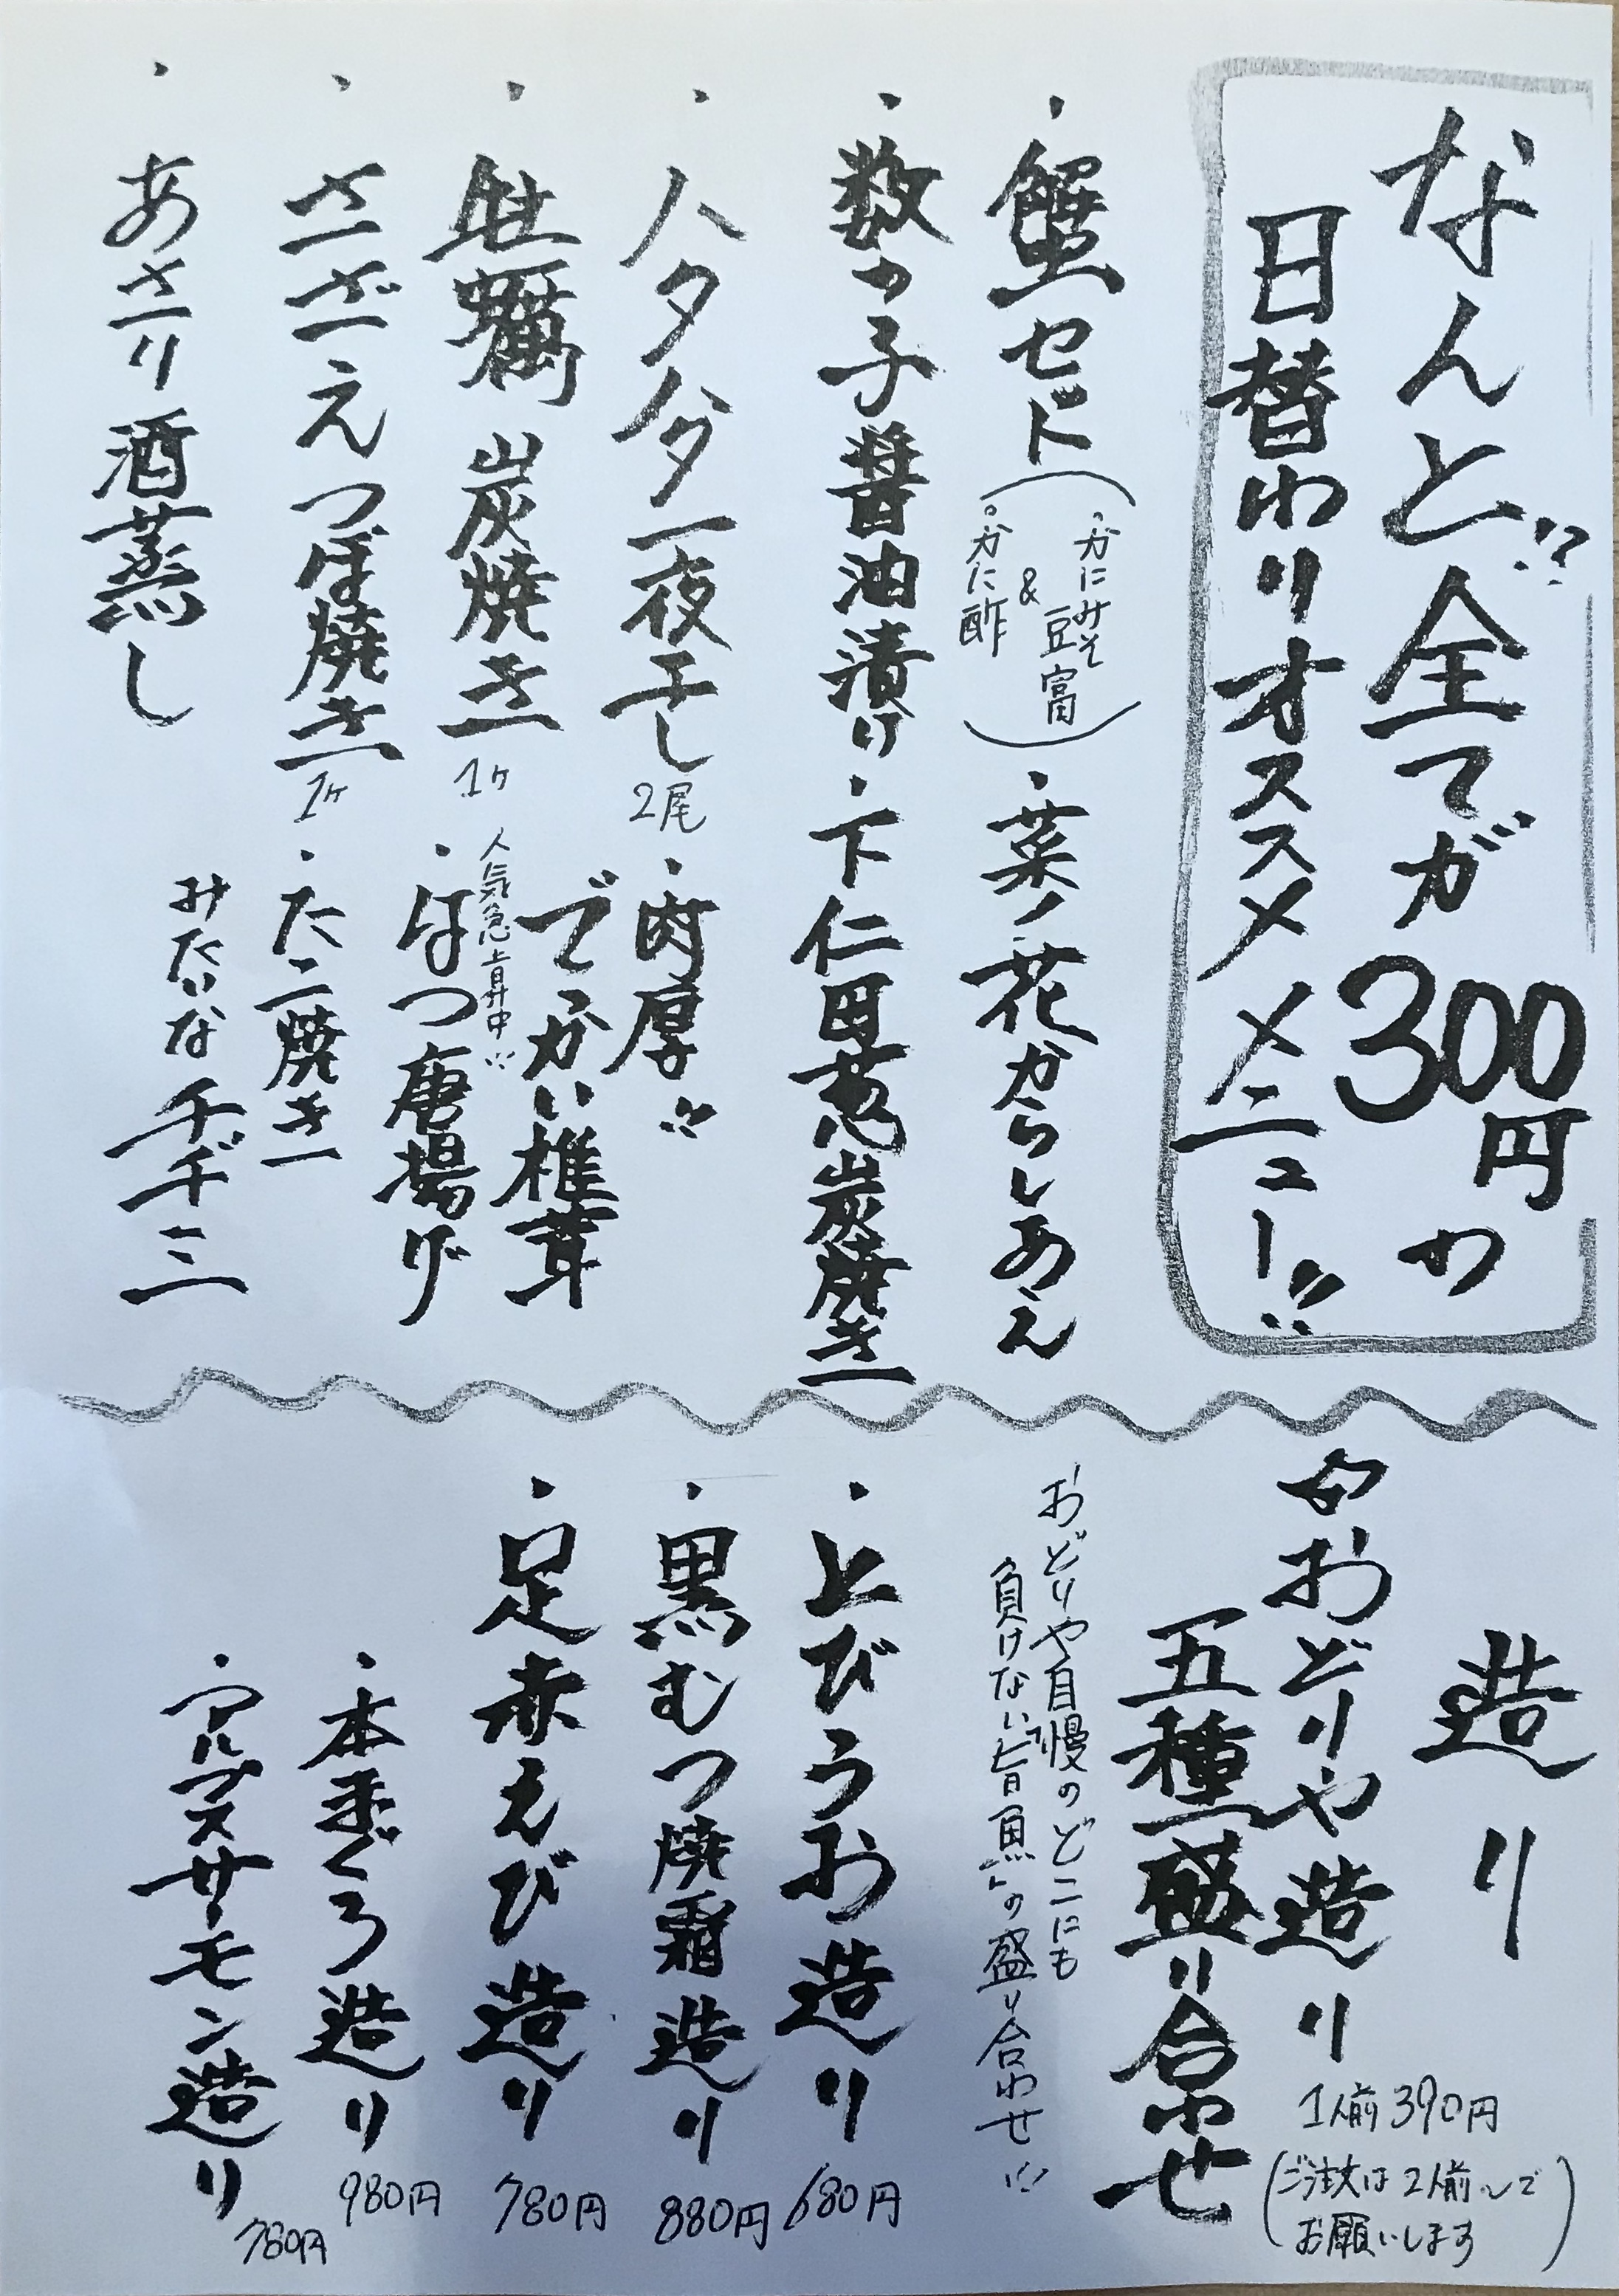 なんと!?全てが300円の
日替わりオススメメニュー!!!
・蟹セド
(・かにみそ
豆富
&
・かに酢)
・菜ノ花からしあえ
・数の子醤油漬け
・下仁田葱炭焼き
・ハタハタ一夜干し 2尾
・肉厚!!
でっかい椎茸
・牡蠣炭焼き 1ヶ
人気急上昇中!!
・はつ唐揚げ
・さざえつぼ焼き 1ヶ
・たこ焼き
みたいなチヂミ
・あさり酒蒸し
造り
☆おどりや造り
五種盛り合わせ
1人前390円
(ご注文は2人前〜で
お願いします)
おどりや自慢のどこにも
負けない「旨魚」の盛り合わせ!!!
・とびうお造り 680円
・黒むつ焼霜造り 880円
・足赤えび造り 780円
・本まぐろ造り 980円
・アルプスサーモン造り 780円